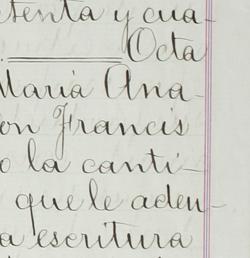 etenta y cua-
Octa
María Ana-
on Francis
o la canti-
que le aden-
a escritura